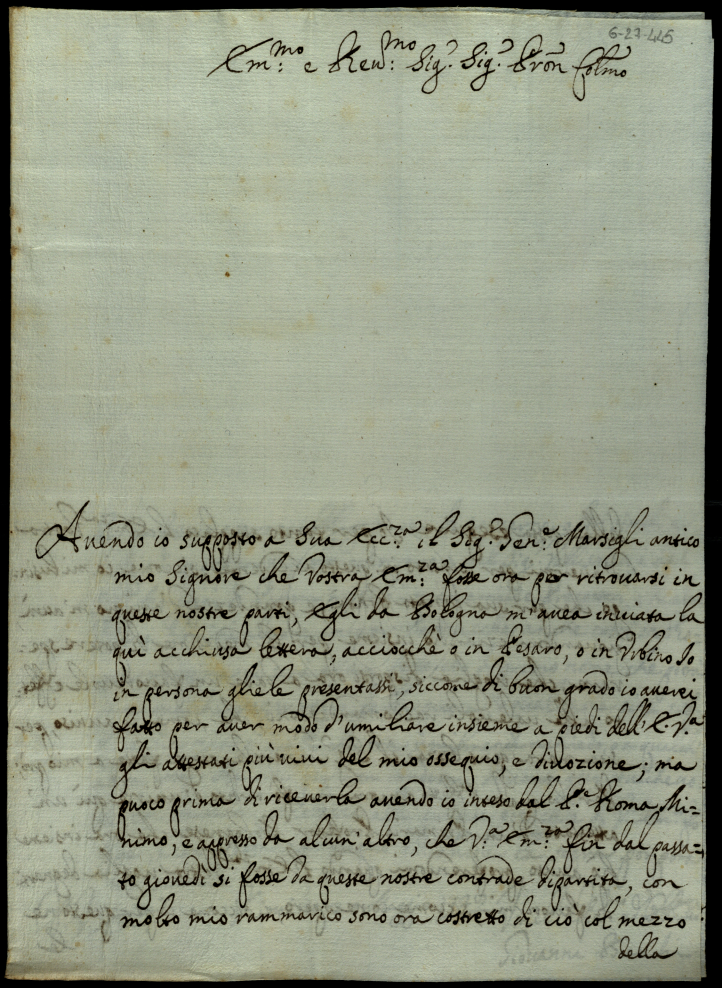 6-27-445
Em:mo e Reu:mo Sig.r Sig.r Pron Colmo
Auendo io supposto a Sua Ecc:za il Sig.r Gen.e Marsigli antico
mio Signore che Vostra Em:za fosse ora per ritrouarsi in
queste nostre parti, Egli da Bologna m'auea inuiata la
quì acchiusa lettera, acciocchè o in Pesaro, o in Urbino Io
in persona gliele presentassi, siccome di buon grado io auerei
fatto per auer modo d'umiliare insieme a piedi dell'E. V.a
gli attestati più viui del mio ossequio, e diuozione; ma
puoco prima di riceuerla auendo io inteso dal P.e Roma Mi=
nimo, e appresso da alcun'altro, che V.a Em:za fin dal passa=
to giouedì si fosse da queste nostre contrade dipartita, con
molto mio rammarico sono ora costretto di ciò col mezzo
della